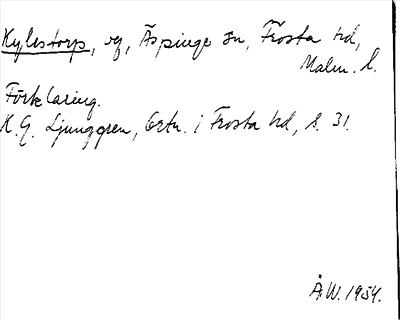 Kylestorp, vg, Äspinge sn, Frosta hd,
Malm. l.
Förklaring.
K.G. Ljunggren, Ortn. i Frosta hd, s. 31.
Å.W. 1954.